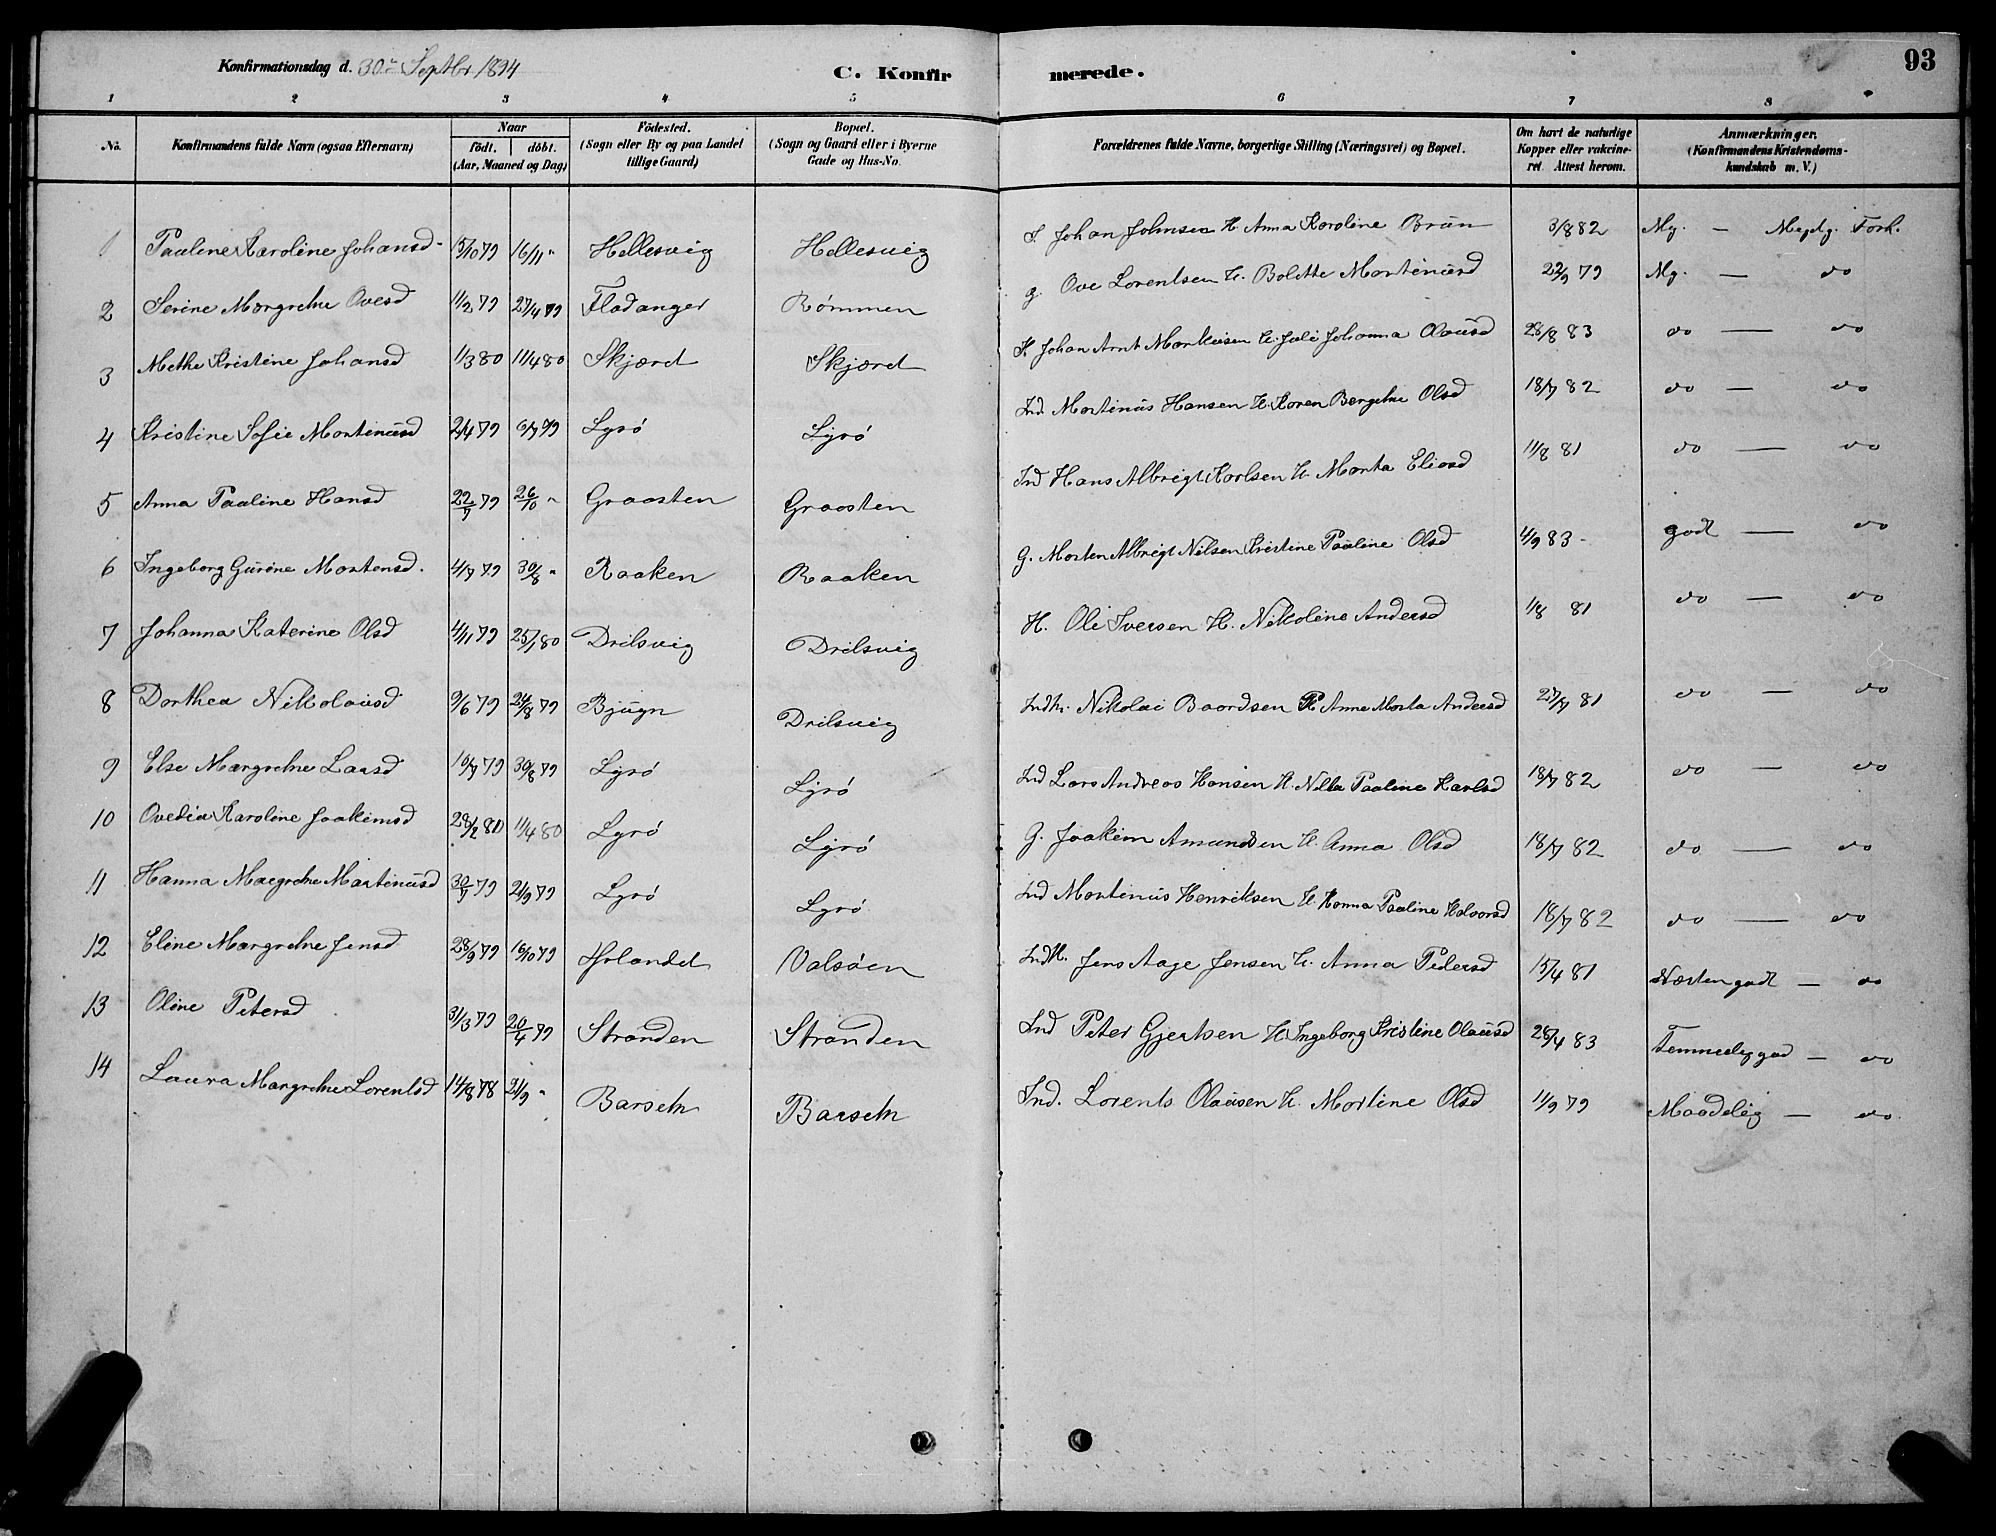 Konfirmationsdag d. 30te Septbr 1894
C. Konfir merede.
93
1 2 3 4 5 6 7 8
No.
Konfirmandens fulde Navn (ogsaa Efternavn)
Naar
födt. döbt.
(Aar, Maaned og Dag)
Födested.
(Sogn eller By og paa Landet
tillige Gaard)
Bopæl.
(Sogn og Gaard eller i Byerne
Gade og Hus-No.
Forældrenes fulde Navne, borgerlige Stilling (Næringsvei) og Bopæl.
Om havt de naturlige
Kopper eller vakcine-
ret. Attest herom.
Anmærkninger.
(Konfirmandens Kristendoms-
kundskab m. V.)
1 Pauline Karoline Johansd 15/10 79 16/11 " Hellesvig Hellesvig S. Johan Johnsen H. Anna Karoline Brun 3/8 82 Mg. — Megelg. Forh.
2 Serine Margrethe Ovesd 11/2 79 27/4 79 Fladanger Rømmen g. Ove Lorentsen H. Bolette Martinusd 22/9 79 Mg. — do
3 Methe Kristine Johansd 1/3 80 11/4 80 Skjærd Skjærd S. Johan Arnt Markusen H. Juli Johanna Olausd 28/8 83 do — do
4 Kristine Sofie Martinusd 2/4 79 6/7 79 Lyrö Lyrö Ind. Martinus Hansen H. Karen Bergethe Olsd 18/7 82 do — do
5 Anna Pauline Hansd 22/7 79 26/10 " Graasten Graasten Ind Hans Albrigt Karlsen H. Marta Eliasd 11/8 81 do — do
6 Ingeborg Gurine Mortensd. 4/7 79 30/8 " Raaken Raaken G. Morten Albrigt Nilsen Kristine Pauline Olsd 4/9 83 - godt — do
7 Johanna Katerine Olsd 4/11 79 25/1 80 Drilsvig Drilsvig H. Ole Iversen H. Nikoline Andersd 1/8 81 do — do
8 Dorthea Nikolaisd 9/6 79 24/8 79 Bjugn Drilsvig Indh. Nikolai Baardsen H Anne Marta Andersd 27/7 81 do — do
9 Else Margrethe Larsd 10/7 79 30/8 79 Lyrö Lyrö Ind Lars Andreas Hansen H. Nella Pauline Karlsd 18/7 82 do — do
10 Ovedia Karoline Joakimsd 28/2 80 11/4 80 Lyrö Lyrö G. Joakim Amundsen H. Anna Olsd 18/7 82 do — do
11 Hanna Margrethe Martinusd 30/7 79 21/9 79 Lyrö Lyrö Ind Martinus Henriksen H. Hanna Pauline Halvorsd 18/7 82 do — do
12 Eline Margrethe Jensd 28/9 79 16/10 79 Valsöen IndH. Jens Aage Jensen H. Anna Pedersd 15/4 81 Næsten godt — do
13 Oline Petersd 31/3 79 20/4 79 Stranden Stranden Ind Peter Gjertsen H. Ingeborg Kristine Olausd 28/4 83 Temmelig god — do
14 Laura Margrethe Lorentsd 14/8 78 21/9 " Barseth Barseth Ind. Lorents Olausen H. Martine Olsd 11/9 79 Maadelig — do